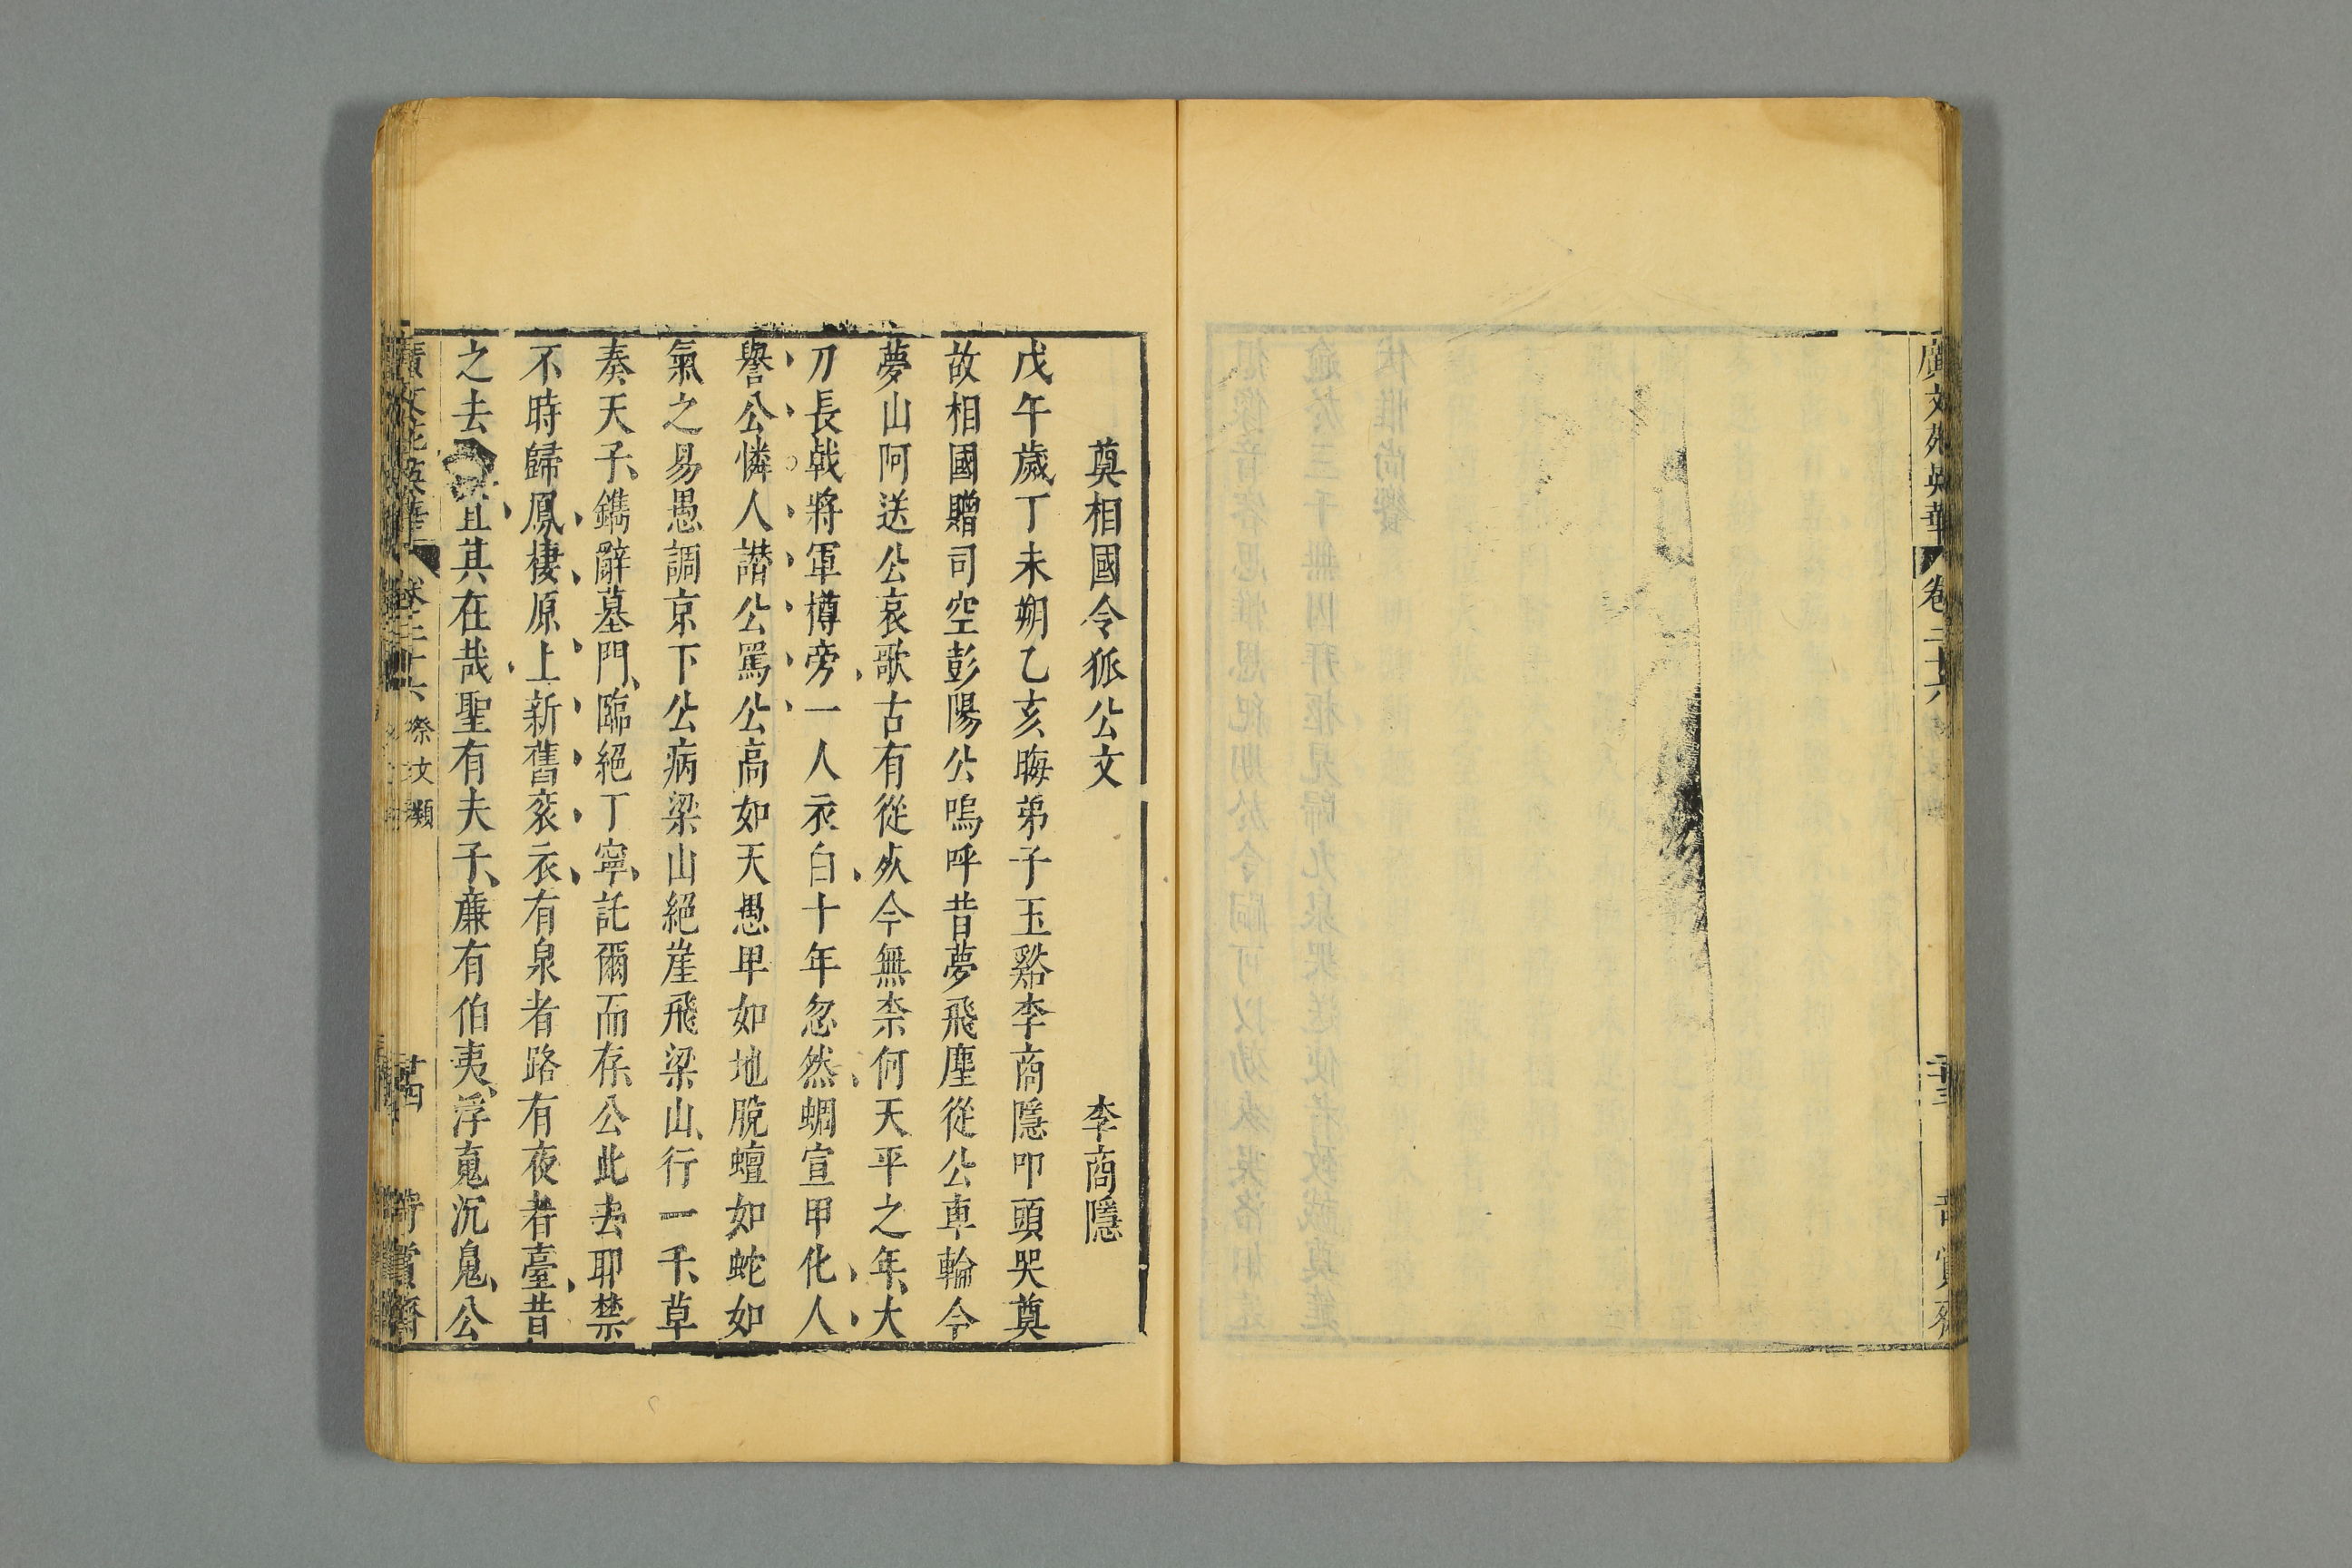 廣文苑英華
卷二十六
二十三
賞
奠相國令狐公文　李商隱
戊午歲丁未朔乙亥晦弟子玉谿李商隱叩頭哭奠
故相國贈司空彭陽公嗚呼昔夢飛塵從公車輪今
夢山阿送公哀歌古有從死今無柰何天平之年大
刀長戟將軍樽旁一人衣白十年忽然蜩宣甲化人
譽公憐人譖公罵公高如天愚卑如地脫蟺如蛇如
氣之易愚調京下公病梁山絕崖飛梁山行一千草
奏天子鐫辭墓門臨絕丁寧託爾而存公此去耶禁
不時歸鳳棲原上新舊衮衣有泉者路有夜者臺昔
之去宜其在哉聖有夫子廉有伯夷浮䰟沉鬼公
廣文苑英華
卷二十六
祭文類
廿四
賞齋